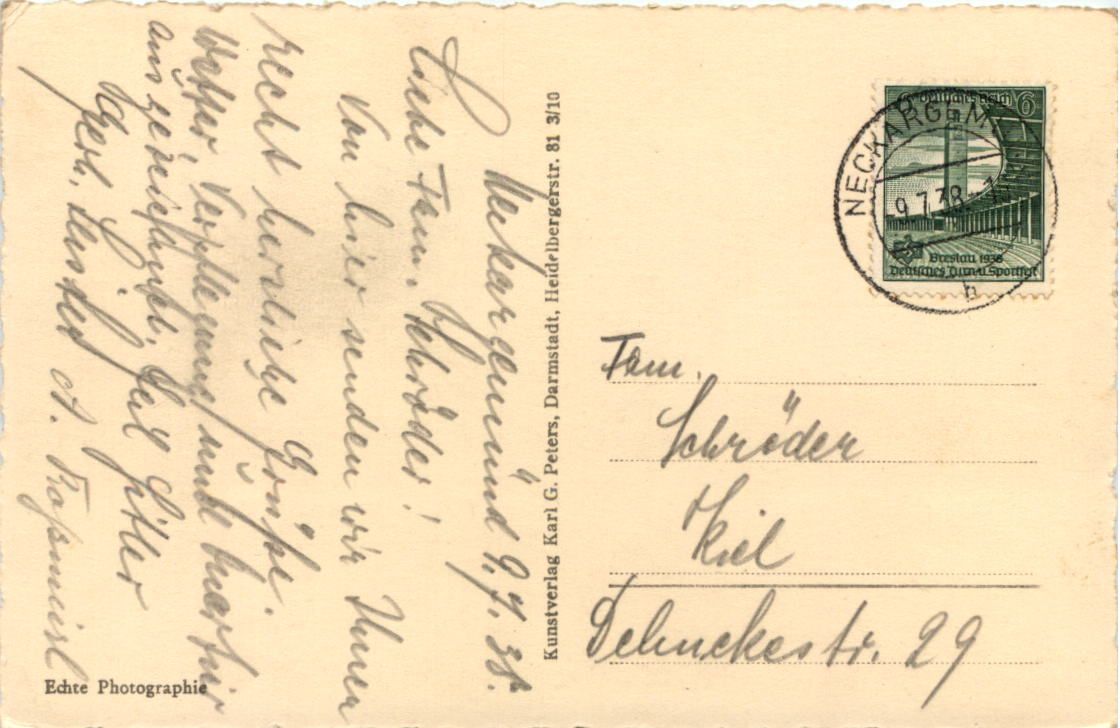 Neckargemünd 9.7.38.
Liebe Fam. Schröder!
Von hier senden wir Ihnen
recht herzliche Grüße.
Wetter, Verpflegung und Quartier
ausgezeichnet. Heil Hitler
Gerh. und A.
Echte Photographie
Kunstverlag Karl G. Peters, Darmstadt, Heidelbergerstr. 81 3/10
Deutsches Reich 6
Breslau 1938
Deutsches Turn-u. Sportfest
NECKARGEM
9.7.38
Fam.
Schröder
Kiel
Dehnckestr. 29